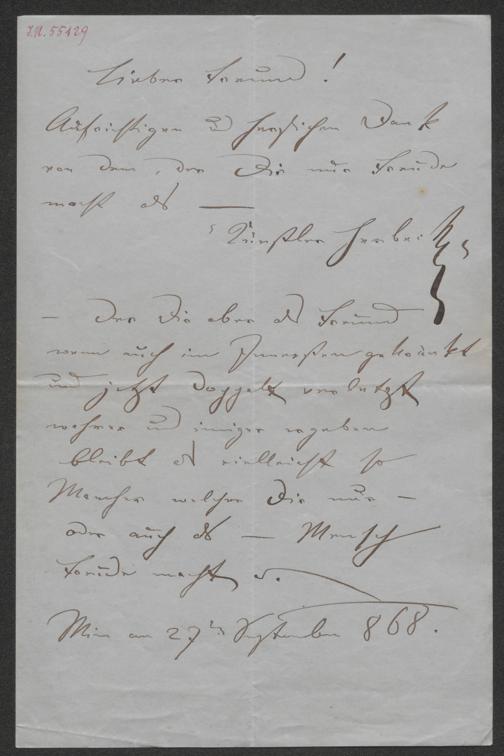 I.N. 55129
Lieber Freund!
Aufrichtigen u herzlichen Dank
von dem, der Dir nur Freude
macht als —
Künstler Herbeck
— Der Dir aber als Freund
wenn auch im Innersten gekränkt
und jetzt doppelt verletzt
wahrer und inniger ergeben
bleibt als vielleicht so
Mancher welcher Dir nur —
oder auch als — Mensch
Freude macht
Wien am 27ten September 868.